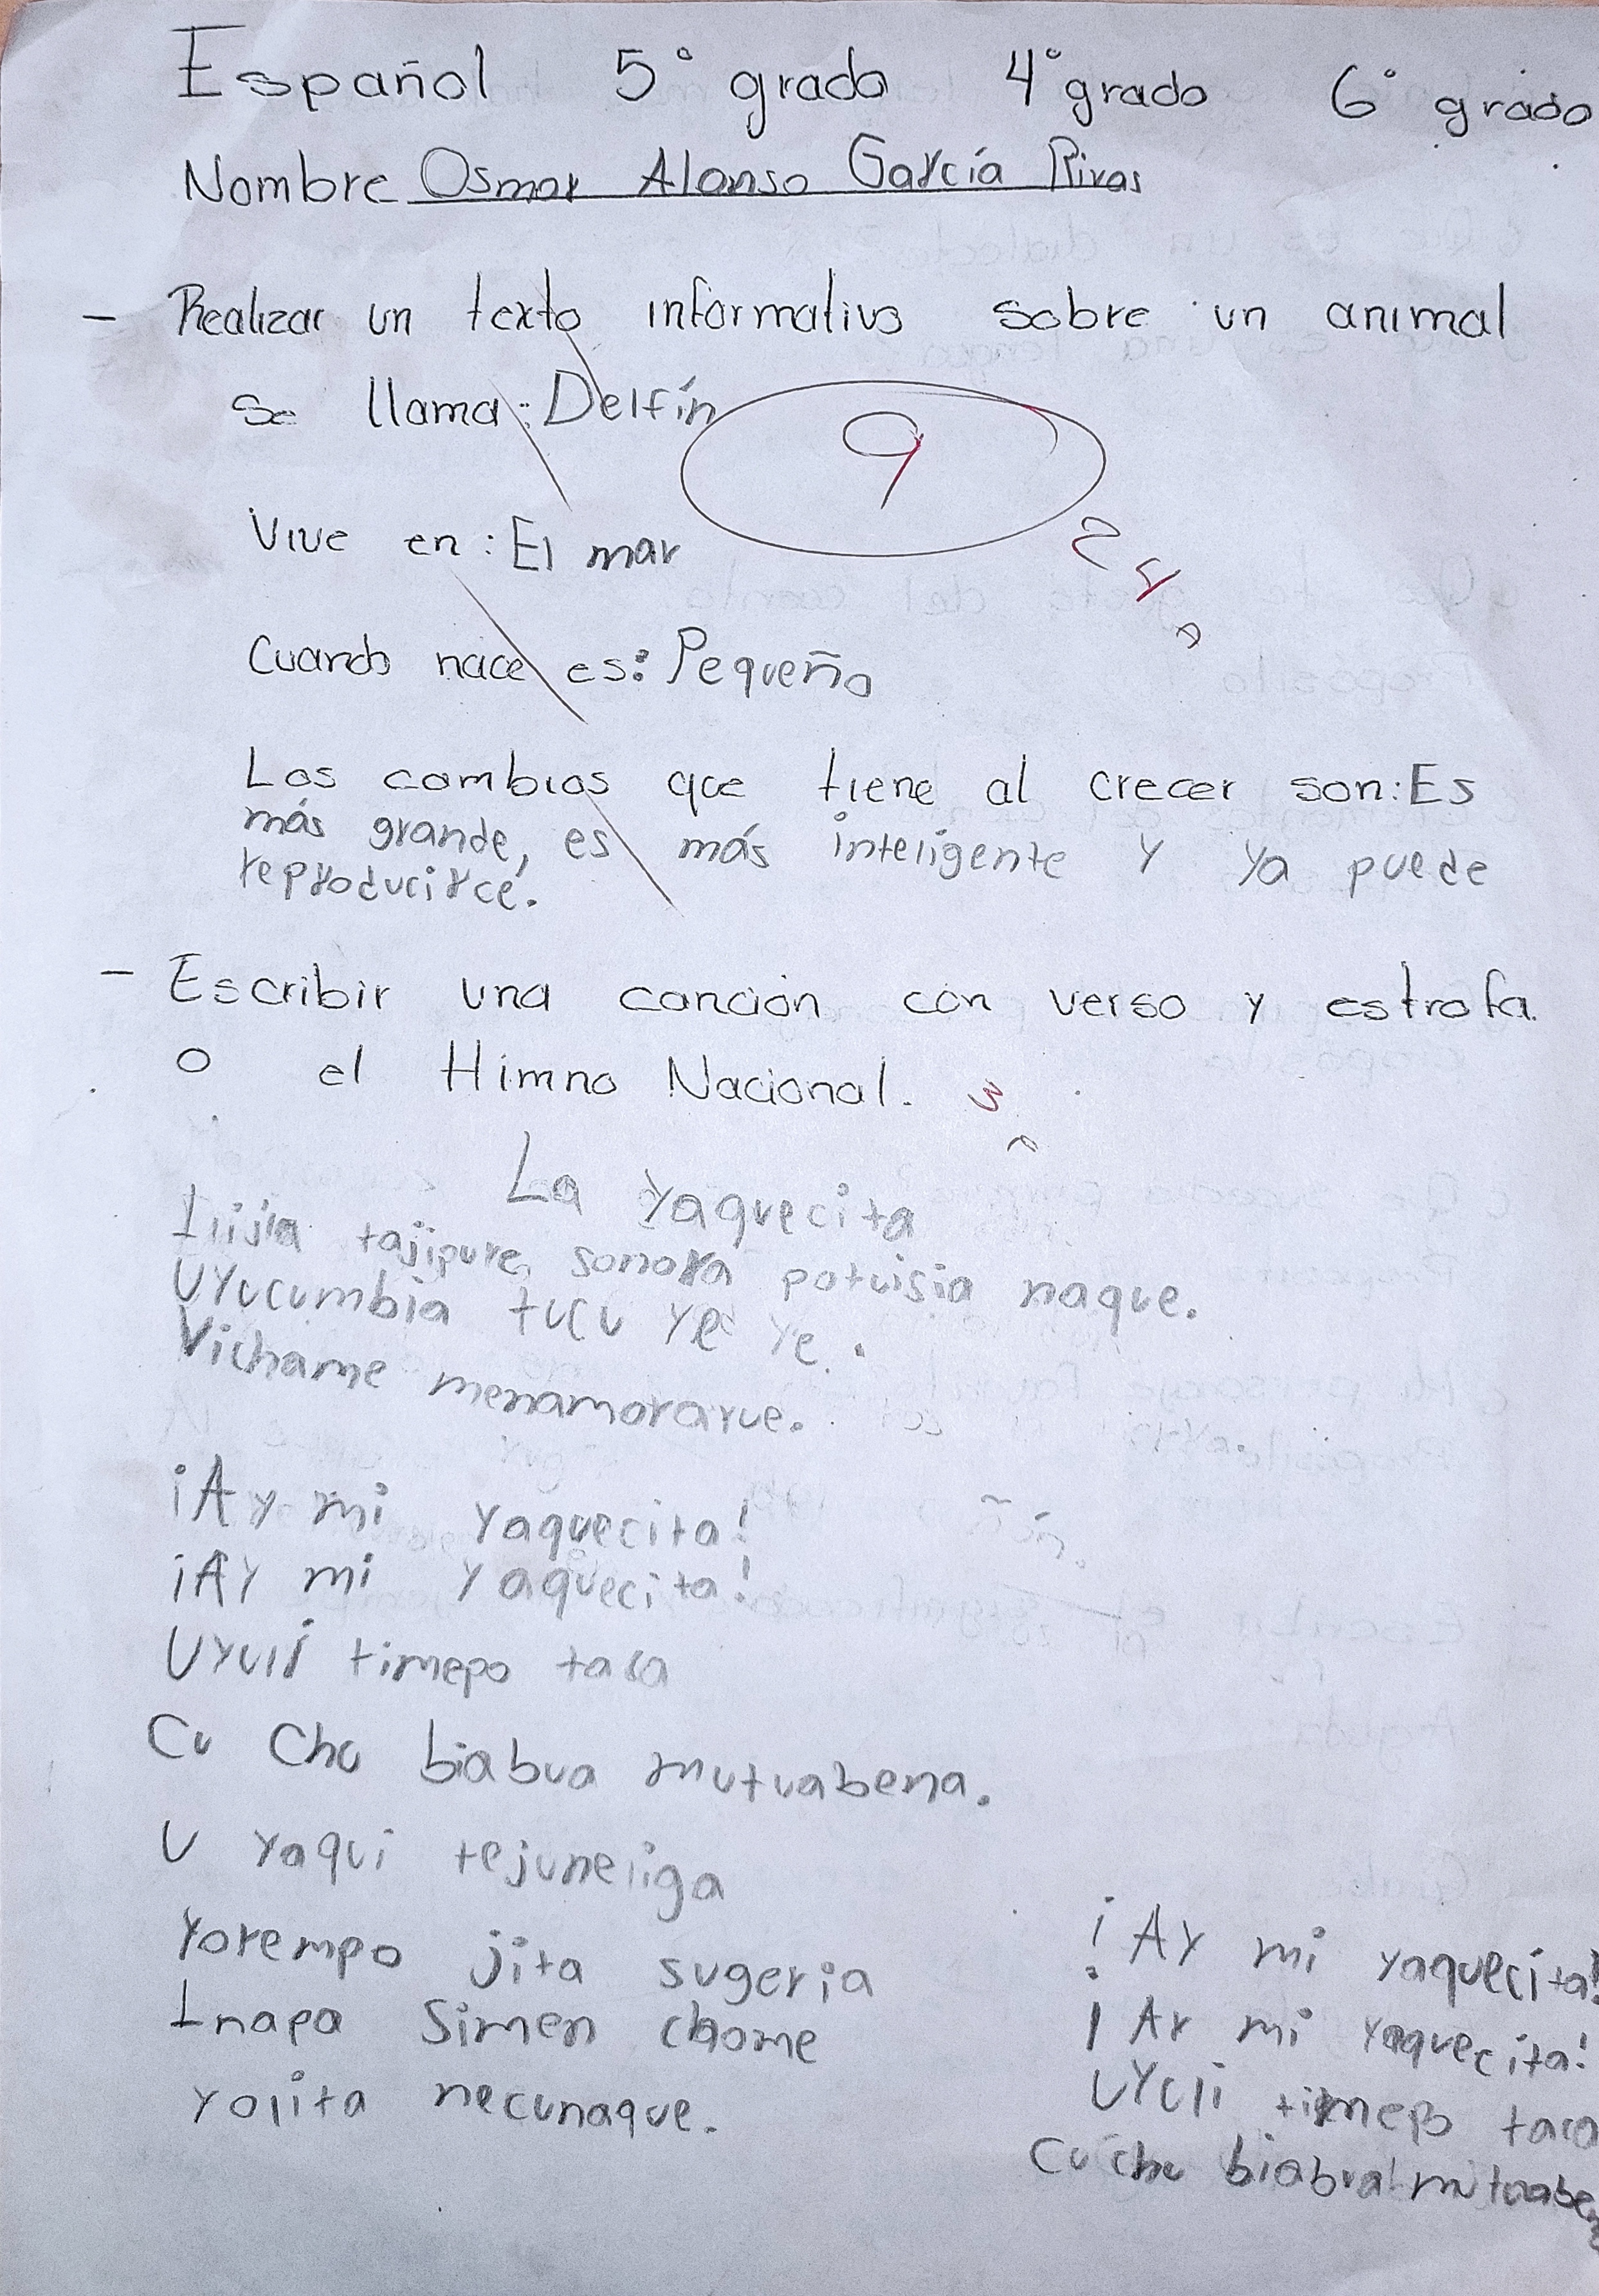 Español 5° grado 4° grado 6° grado
Nombre Osmar Alonso García Rivas
- Realizar un texto informativo sobre un animal
se llama: Delfín
9
Vive en: El mar
Cuando nace es: Pequeño
Los cambios que tiene al crecer son: Es
más grande, es más inteligente y ya puede
reproducirce.
- Escribir una canción con verso y estrofa
o el Himno Nacional.
La Yaquecita
tajipure, sonora potuisia naque.
Uyucumbia tucu ye ye.
Vichame menamorarue.
¡Ay mi yaquecita!
¡Ay mi yaquecita!
Uyuli timepo taca
Cu Chu biabua mutuabena.
U yaqui tejuneliga
Yorempo jita sugeria
Inapa Simen chome
yolita necunaque.
¡Ay mi yaquecita!
¡Ay mi yaquecita!
Uyuli timepo taca
Cu chu biabua mutuabe